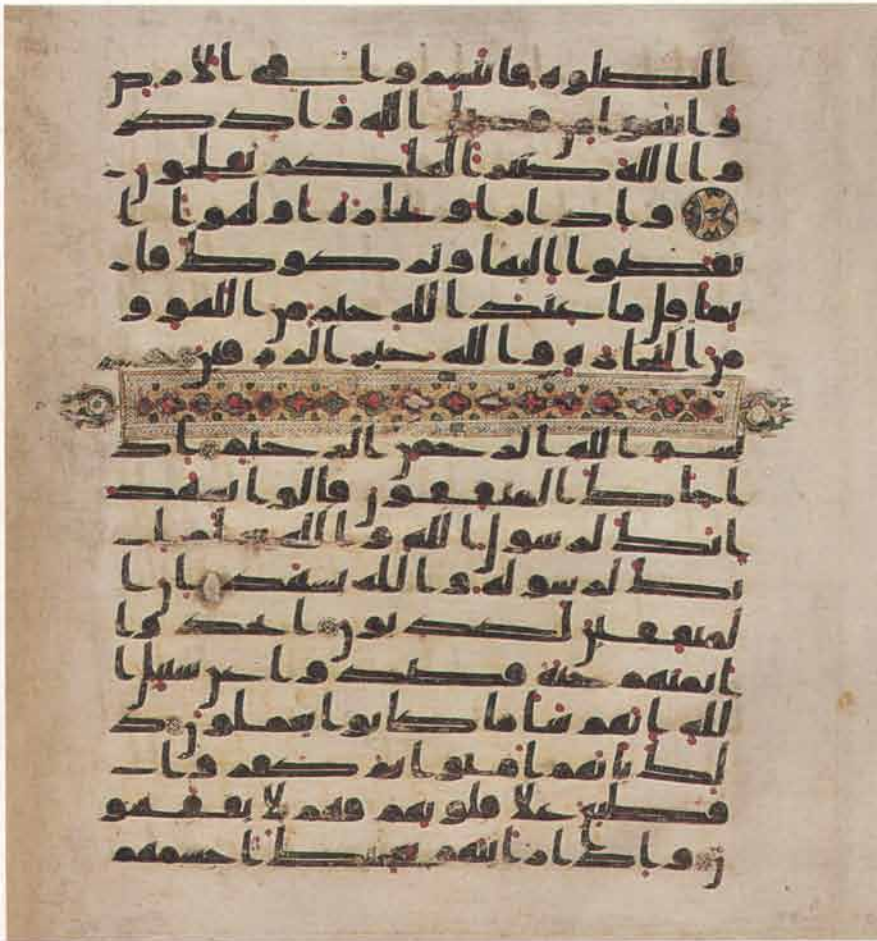 الصلوه فانتشروا في الارض
وابتغوا من فضل الله واذكر
وا الله كثيرا لعلكم تفلحون
واذا راوا تجاره او لهوا ا
نفضوا اليها وتركوك قا
يما قل ما عند الله خير من اللهو و
من التجاره والله خير الرزقين
بسم الله الرحمن الرحيم اذ
ا جاك المنفقون قالوا نشهد
انك لرسول الله والله يعلم ا
نك لرسوله والله يشهد ان ا
لمنفقين لكذبون اتخذوا
ايمنهم جنه فصدوا عن سبيل ا
لله انهم سا ما كانوا يعملون ذ
لك بانهم امنوا ثم كفروا
فطبع علا قلوبهم فهم لا يفقهو
ن واذا رايتهم تعجبك اجسمهم